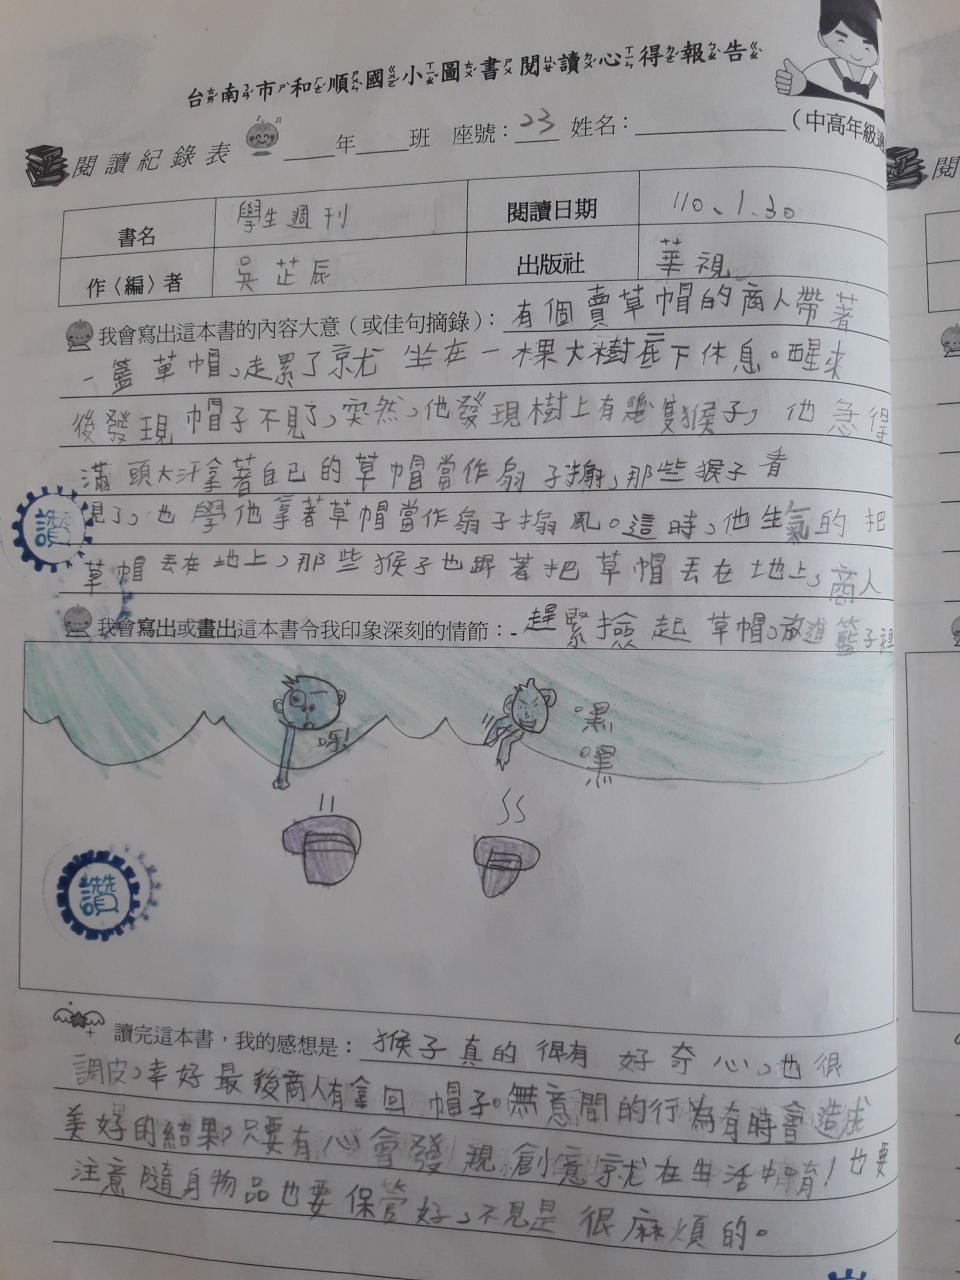 台南市和順國小圖書閱讀心得報告
閱讀紀錄表 ____年____班 座號：23 姓名：__________（中高年級適
書名 學生週刊 閱讀日期 110、1、30
作〈編〉者 吳芷辰 出版社 華視
我會寫出這本書的內容大意（或佳句摘錄）：有個賣草帽的商人帶著
一籃草帽，走累了就坐在一棵大樹底下休息。醒來
後發現帽子不見了，突然，他發現樹上有幾隻猴子，他急得
滿頭大汗拿著自己的草帽當作扇子搧，那些猴子看
見了，也學他拿著草帽當作扇子搧風。這時，他生氣的把
草帽丟在地上，那些猴子也跟著把草帽丟在地上，商人
我會寫出或畫出這本書令我印象深刻的情節：趕緊撿起草帽，放進籃子裡
呀！
嘿
嘿
讚
讚
讀完這本書，我的感想是：猴子真的很有好奇心，也很
調皮，幸好最後商人有拿回帽子。無意間的行為有時會造成
美好的結果，只要有心會發現創意就在生活中有！也要
注意隨身物品也要保管好，不見是很麻煩的。